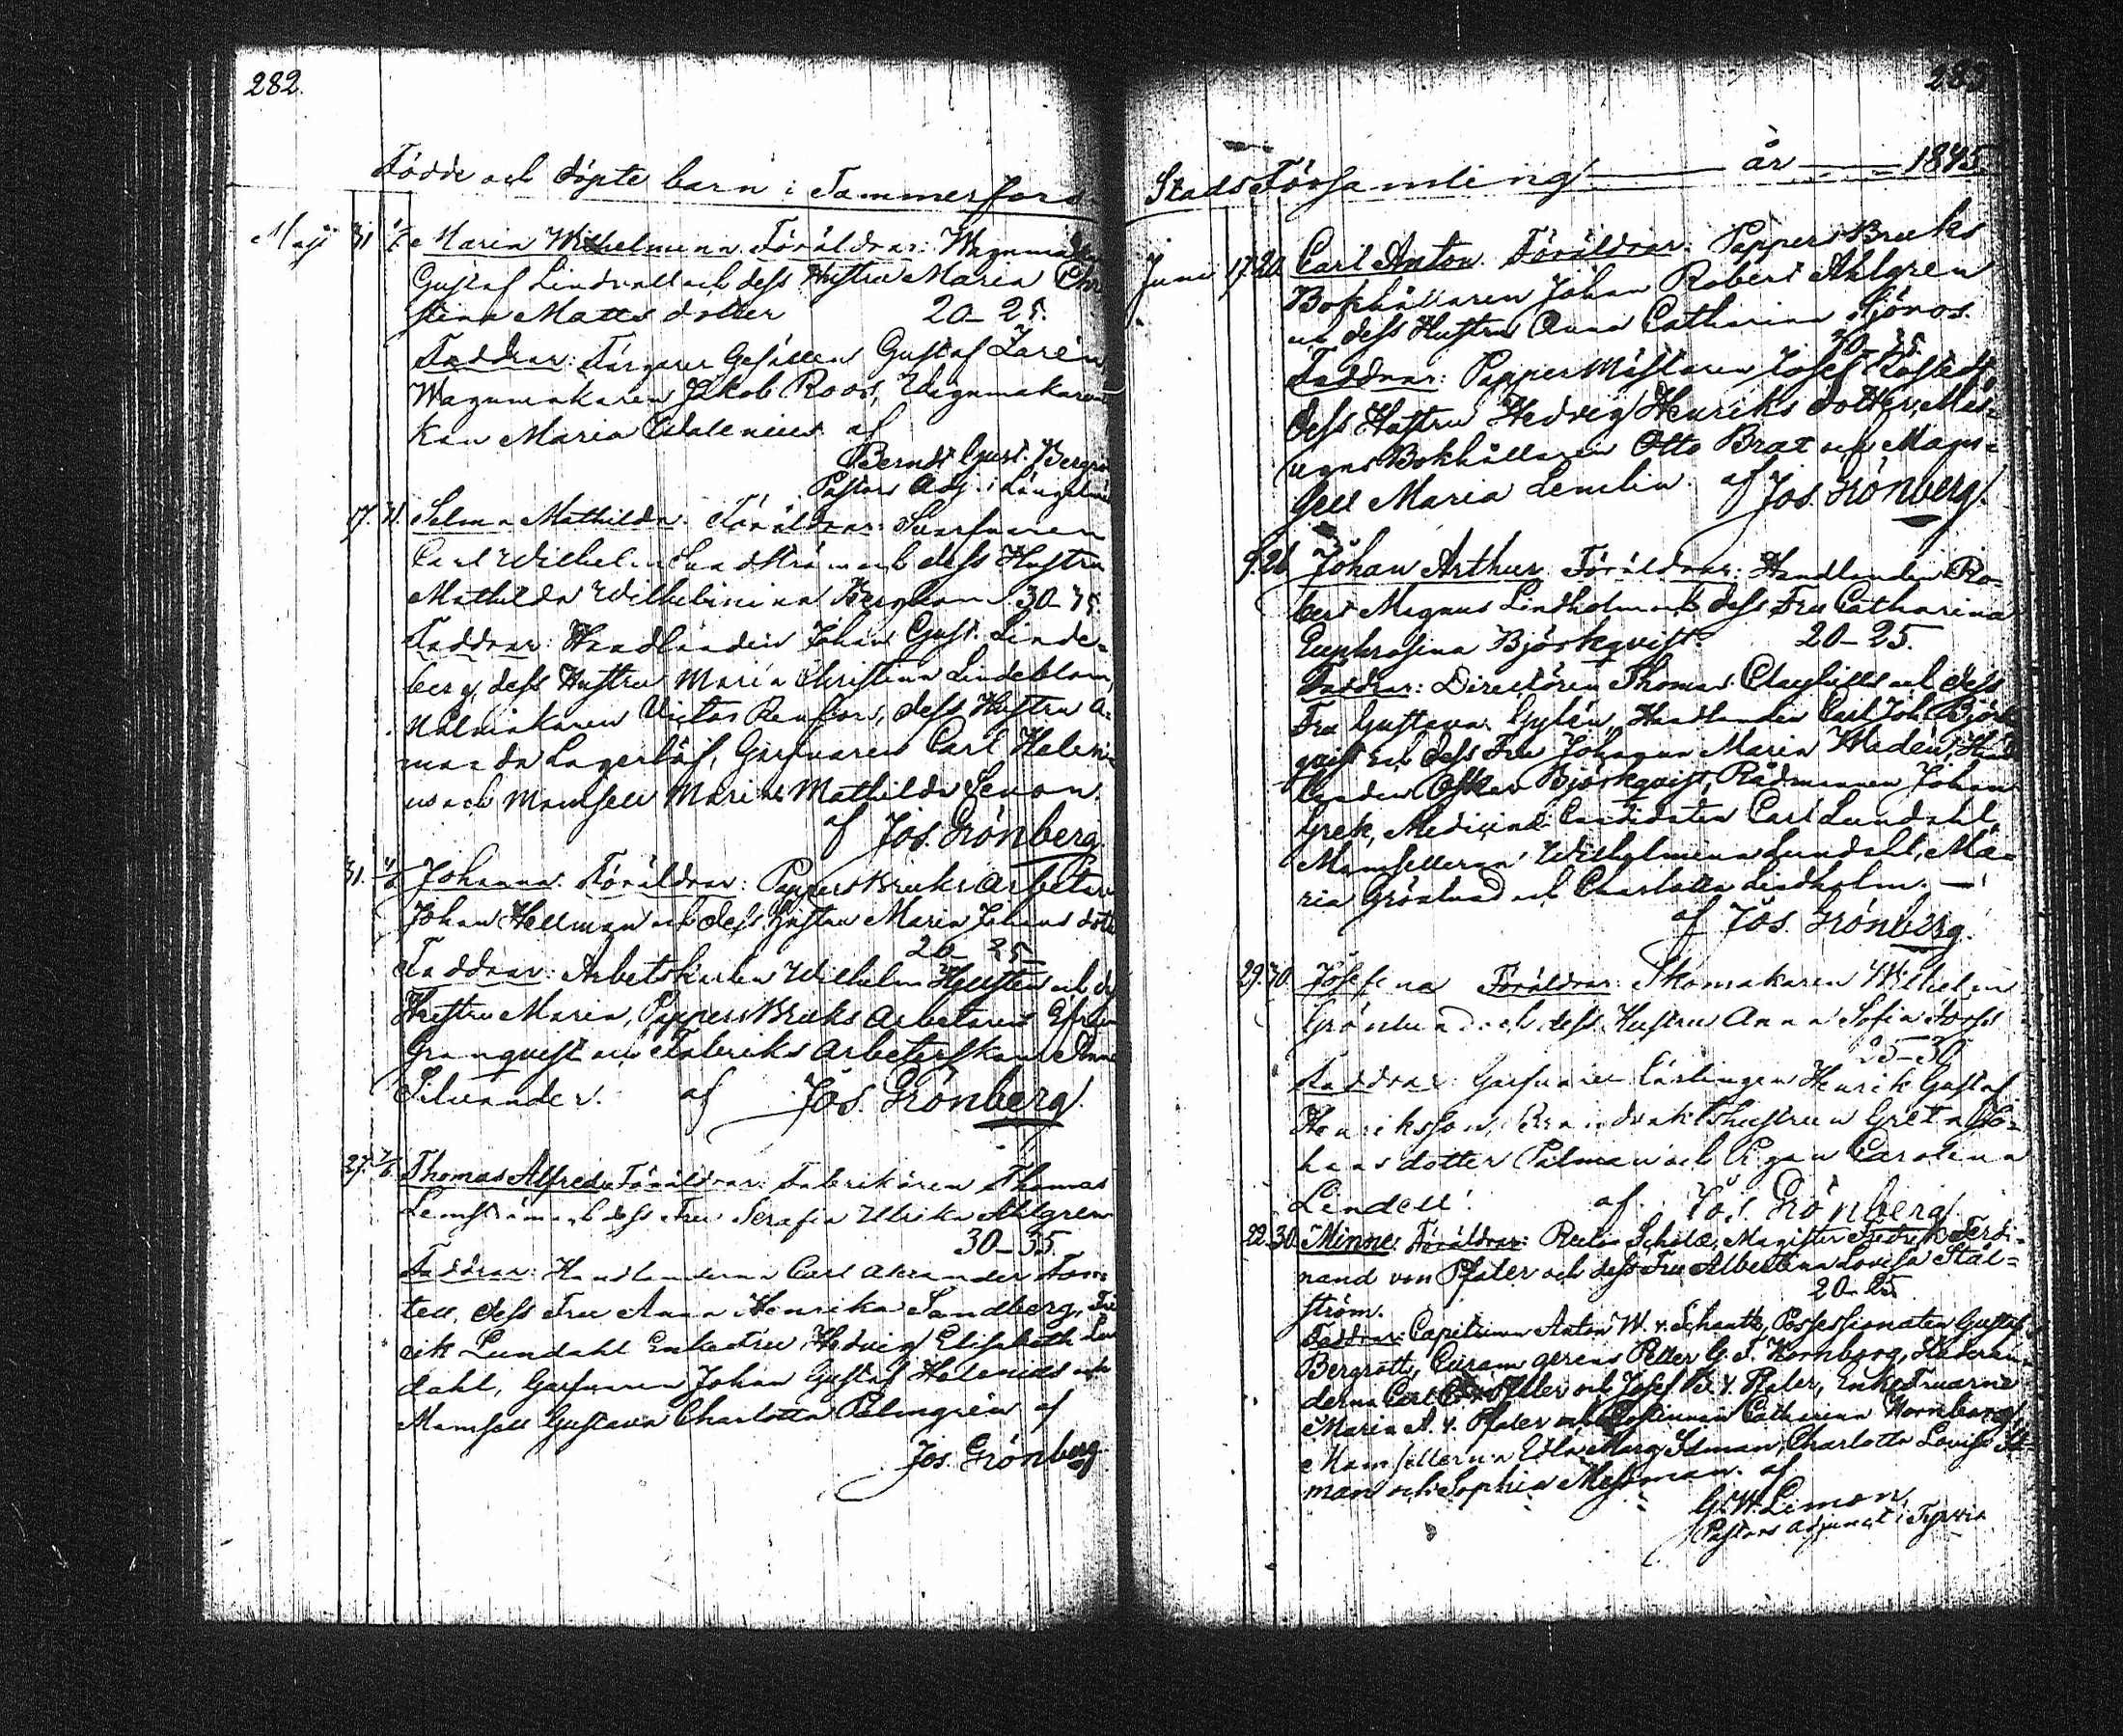 282.
Födde och döpte barn i Tammerfors
Maji 31 1/6 Maria Wilhelmina. Föräldrar: Wagnmakaren
Gustaf Lindvall och dess Hustru Maria Chri
stina Matts dotter 20–25.
Faddrar: Färgare Gesällen Gustaf Zarén
Wagnmakaren Jakob Roos, Wagnmakare
kan Maria Walenius af
Bernd Gust. Bergro
Pastors Adj. i Längelmä
17. 31. Selma Mathilda. Föräldrar: Garfvaren
Carl Wilhelm Sandström och dess Hustru
Mathilda Wilhelmina Bergbom 30–35.
Faddrar: Handlanden Johan Gust. Linde-
berg, dess Hustru Maria Christina Lindeblom,
Målaren Victor Renfors, dess Hustru A-
manda Lagerlöf, Garfvaren Carl Heleni-
us och Mamsell Maria Mathilda Lenon.
af Jos. Grönberg.
31. 1/6 Johanna. Föräldrar: Pappers Bruks Arbetar
Johan Hellman och dess Hustru Maria Johans dott
20–25
Faddrar: Arbetskarlen Wilhelm Hellsten och de
Hustru Maria, Pappers Bruks Arbetaren Efraim
Granqvist och Fabriks Arbeterskan Anna
Silvander. af Jos. Grönberg.
27. 2/6. Thomas Alfred. Föräldrar: Fabrikören Thomas
Lemström och dess Fru Serafia Ulrika Ahlgren
30–35.
Faddrar: Handlanderne Carl Alexander Fon-
tell, dess Fru Anna Henrika Sandberg, Fre
rik Lundahl Enkefru Hedvig Elisabeth Lun
dahl, Garfvaren Johan Gustaf Helenius och
Mamsell Gustava Charlotta Palmgrén af
Jos. Grönberg.
283
Stads Församling år 1845.
Juni 17. 20. Carl Anton. Föräldrar: Pappers Bruks
Bokhållaren Johan Robert Ahlgren
och dess Hustru Anna Catharina Sjöroos.
30–35
Faddrar: Pappermästaren Josef
dess Hustru Hedvig Henriks dotter, Mas-
ugns Bokhållaren Otto Brax och Mam-
sell Maria Lemelin. af Jos. Grönberg.
9. 26 Johan Arthur. Föräldrar: Handlanden Ro-
bert Magnus Lindholm och dess Fru Catharina
Euphrosina Björkqvist. 20–25.
Faddrar: Directören Thomas Clayhills och dess
Fru Gustava Gylén, Handlanden Carl Joh. Björk
qvist och dess Fru Johanna Maria Wedén, Han
landen Oskar Björkqvist, Rådmannen Johan
Grek, Medicine Candidaten Carl Lundahl,
Mamsellerna Wilhelmina Lundahl, Ma-
ria Grönlund och Charlotta Lindholm. —
af Jos. Grönberg.
29. 30. Josefina Föräldrar: Skomakaren Wilhelm
Grönlund och dess Hustru Anna Sofia Forss
25–30
Faddrar: Garfvare Lärlingen Henrik Gustaf
Henriksson, Brandvakts hustrun Greta Jo-
hans dotter Palman och Pigan Carolina
Lindell. af Jos. Grönberg.
22. 30. Minne. Föräldrar: Rector Scholæ, Magister Fredrik Ferdi-
nand von Pfaler och dess Fru Albertina Lovisa Stål-
ström. 20–25
Faddrar: Capitainen Anton W. v. Schantz, Possessionaten Gustaf
Bergroth, Curam gerens Petter G. F. Hornborg, Studeran-
derna Carl C. v. Pfaler och Josef B. v. Pfaler, Enke Fruarne
Maria A. v. Pfaler och Catharina Hornborg,
Mamsellerna Edla Marg. Idman, Charlotta Lovisa Id-
man och Sophia Messman. af
G. W. Limon,
Pastors Adjunct i Tyrvis